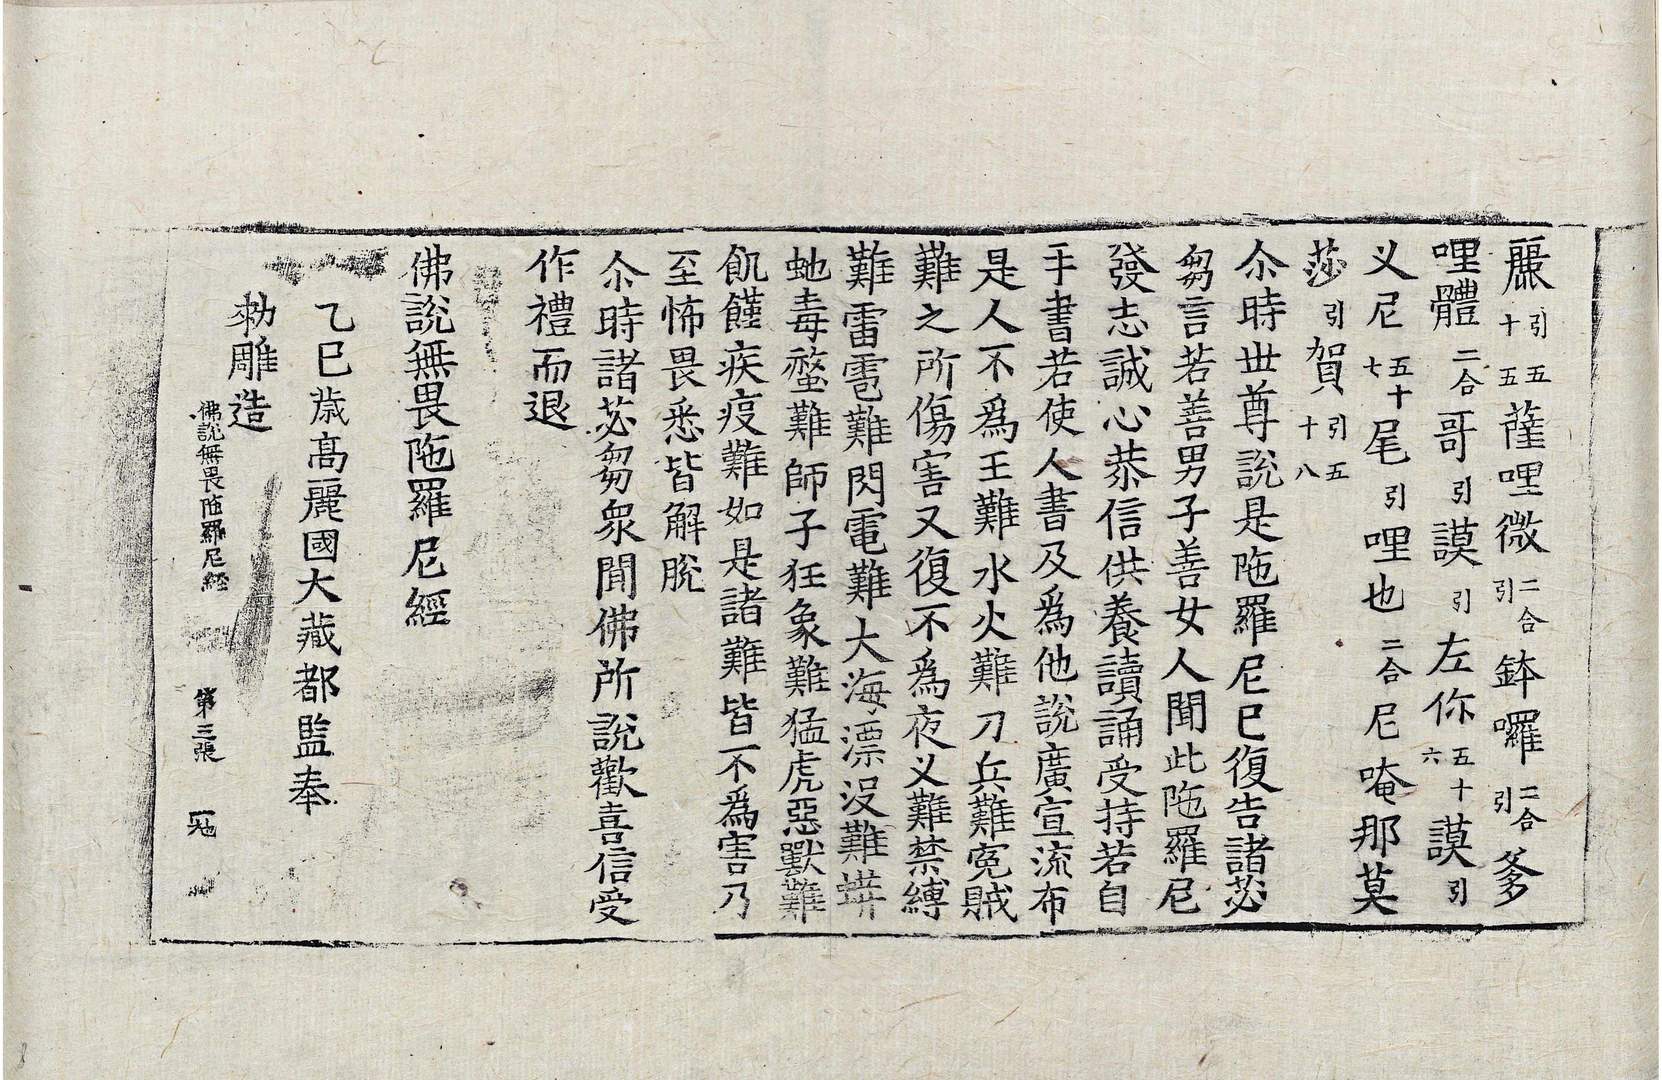 麗引五十五薩哩微二合引鉢囉二合引爹
哩體二合哥引謨引左你五十六謨引
义尼五十七尾引哩也二合尼唵那莫
莎引賀引五十八
尒時世尊說是陁羅尼已復告諸苾
芻言若善男子善女人聞此陁羅尼
發志誠心恭信供養讀誦受持若自
手書若使人書及爲他說廣宣流布
是人不爲王難水火難刀兵難寃賊
難之所傷害又復不爲夜义難禁縛
難雷雹難閃電難大海漂没難蟒
虵毒螫難師子狂象難猛虎惡獸難
飢饉疾疫難如是諸難皆不爲害乃
至怖畏悉皆解脫
尒時諸苾芻衆聞佛所說歡喜信受
作禮而退
佛說無畏陁羅尼經
乙巳歲高麗國大藏都監奉
勑雕造
佛說無畏陁羅尼經 第三張